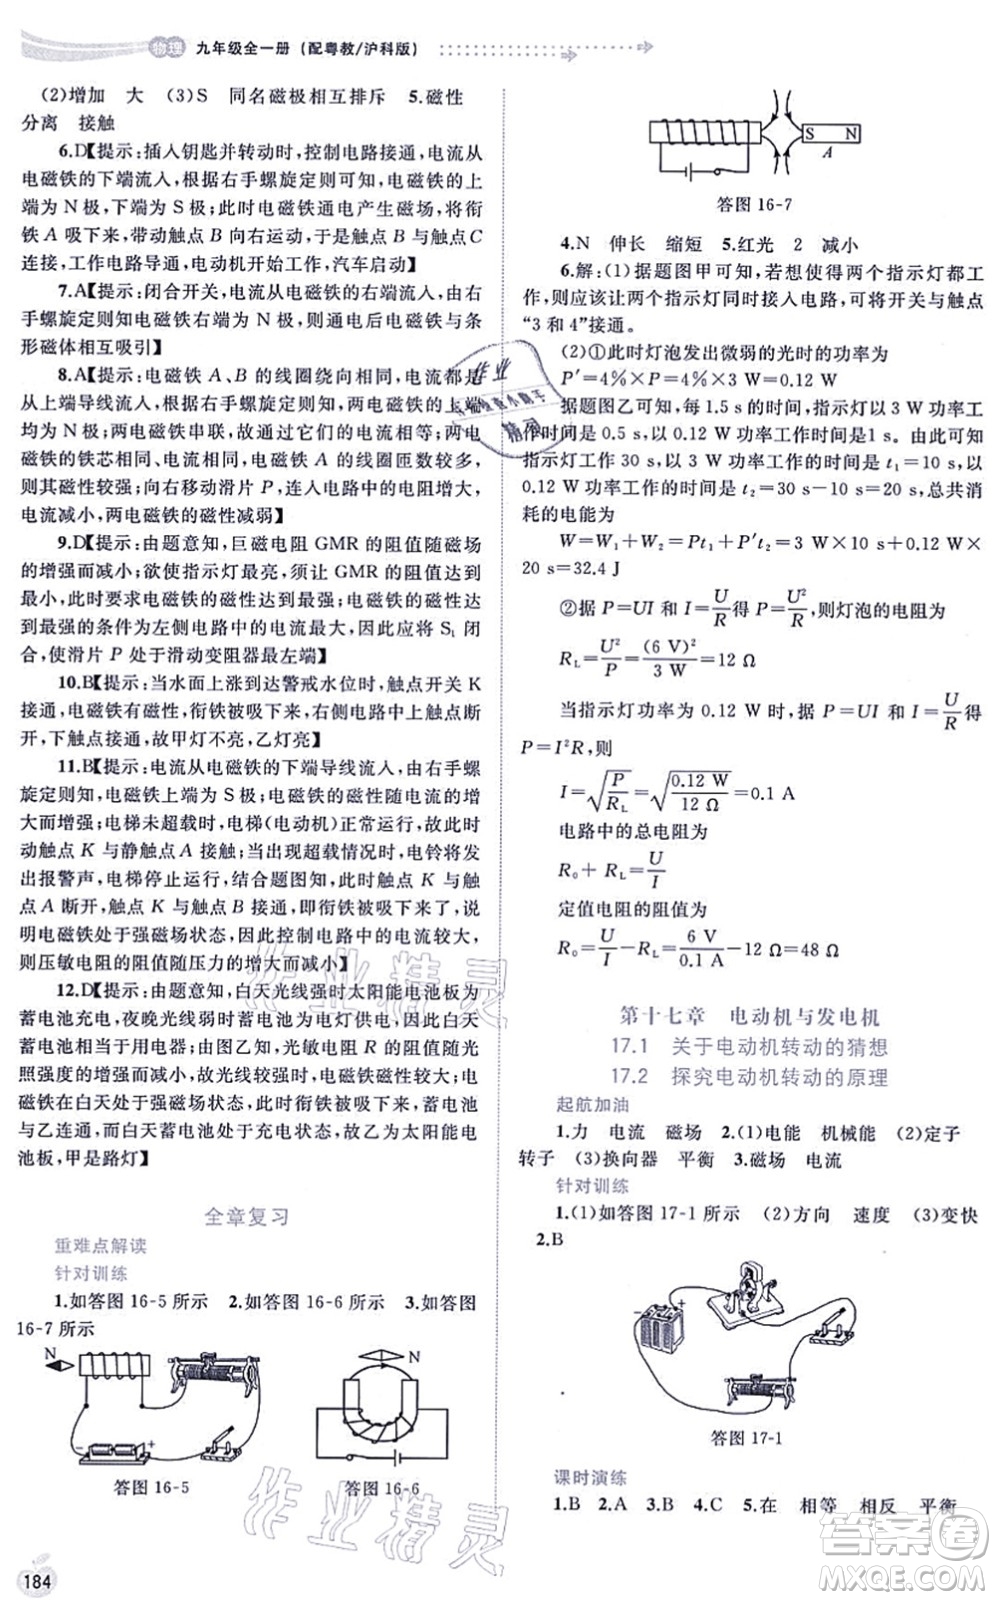 物理 九年级全一册（配粤教/沪科版）
(2)增加 大 (3)S 同名磁极相互排斥 5.磁性
分离 接触
6.D【提示：插入钥匙并转动时，控制电路接通，电流从
电磁铁的下端流入，根据右手螺旋定则可知，电磁铁的上
端为 N 极，下端为 S 极；此时电磁铁通电产生磁场，将衔
铁 A 吸下来，带动触点 B 向右运动，于是触点B 与触点C
连接，工作电路导通，电动机开始工作，汽车启动】
7.A【提示：闭合开关，电流从电磁铁的右端流入，由右
手螺旋定则知电磁铁的左端为N极，则通电后电磁铁与条
形磁体相互吸引】
8.A【提示：电磁铁A、B 的线圈绕向相同，电流都是
从上端导线流入，根据右手螺旋定则，两电磁铁的上端均
为N极；两电磁铁串联，故通过它们的电流相等；两电
磁铁的铁芯相同、电流相同，电磁铁 A 的线圈匝数较多，
磁性较强；向右移动滑片 P，连入电路中的电阻增大，
电流减小，两电磁铁的磁性减弱】
9.D【提示：由题意知，巨磁电阻 GMR 的阻值随磁场
的增强而减小；欲使指示灯最亮，须让 GMR 的阻值达到
最小，此时要求电磁铁的磁性达到最强；电磁铁的磁性达
到最强的条件为左侧电路中的电流最大，因此应将 S₁ 闭
合，使滑片 P 处于滑动变阻器最左端】
10.B【提示：当水面上涨到达警戒水位时，触点开关 K
接通，电磁铁有磁性，衔铁被吸下来，右侧电路中上触点断
开、下触点接通，故甲灯不亮，乙灯亮】
11.B【提示：电流从电磁铁的下端导线流入，由右手螺
旋定则知，电磁铁的上端为S极；电磁铁的磁性随电流的增
大而增强；电梯未超载时，电梯(电动机)正常运行，故此时
动触点 K 与静触点A 接触；当出现超载情况时，电铃将会发
出报警声，电梯停止运行，结合题图知，此时触点 K 与触
点A 断开，触点K 与触点B 接通，衔铁被吸下来了，说
明电磁铁处于强磁场状态，因此控制电路中的电流较大，
则压敏电阻的阻值随压力的增大而减小】
12.D【提示：由题意知，白天光线强时太阳能电池板为
蓄电池充电，夜晚光线弱时蓄电池为电灯供电，因此此时
蓄电池相当于用电器；由图乙知，光敏电阻 R 的阻值随光
照的增强而减小，故光线较强时，电磁铁磁性较强。电磁
铁在白天处于强磁场状态，此时衔铁被吸下来，蓄电池
与乙连通，由于白天蓄电池处于充电状态，故乙为太阳能电
池板，甲是路灯】
全章复习
重难点解读
针对训练
1.如答图 16-5 所示 2.如答图 16-6 所示 3.如答图
16-7 所示
N
答图 16-5
N
答图 16-6
184
S N
A
答图 16-7
4.N 伸长 缩短 5.红光 2 减小
6.解：(1)据题图甲可知，若想使得两个指示灯都工
作，则应该让两个指示灯同时接入电路，可将开关与触点
“3 和 4”接通。
(2)①此时灯泡发出微弱的光时的功率为
P′=4%×P=4%×3 W=0.12 W
据题图乙可知，每 1.5 s 的时间，指示灯以 3 W 功率工
作时间是 0.5 s，以 0.12 W 功率工作时间是1 s。由此可知
指示灯工作 30 s，以 3 W 功率工作的时间是 t₁=10 s，以
0.12 W 功率工作的时间是 t₂=30 s-10 s=20 s，总共消
耗的电能为
W=W₁+W₂=Pt₁+P′t₂=3 W×10 s+0.12 W×
20 s=32.4 J
②据 P=UI 和 I=U/R 得 P=U²/R，则灯泡的电阻为
R_L=U²/P=(6 V)²/3 W=12 Ω
当指示灯功率为 0.12 W 时，据 P=UI 和 I=U/R 得
P=I²R，则
I=√(P/R_L)=√(0.12 W/12 Ω)=0.1 A
电路中的总电阻为
R₀+R_L=U/I
定值电阻的阻值为
R₀=U/I-R_L=6 V/0.1 A-12 Ω=48 Ω
第十七章 电动机与发电机
17.1 关于电动机转动的猜想
17.2 探究电动机转动的原理
起航加油
1.力 电流 磁场 2.(1)电能 机械能 (2)定子
转子 (3)换向器 平衡 3.磁场 电流
针对训练
1.(1)如答图 17-1 所示 (2)方向 速度 (3)变快
2.B
答图 17-1
课时演练
1.B 2.A 3.B 4.C 5.在 相等 相反 平衡
作业精灵
作业精灵
答案圈
MXQE.COM